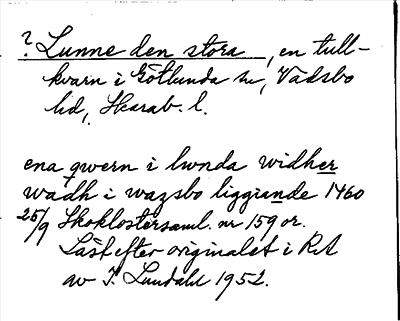 ? Lunne den stora, en tull-
kvarn i Götlunda sn, Vadsbo
hd, Skarab. l.
ena qwern i lwnda widher
wadh i wazsbo liggiande 1460
25/9 Skoklostersaml. nr 159 or.
Läst efter originalet i RA
av I. Lundahl 1952.